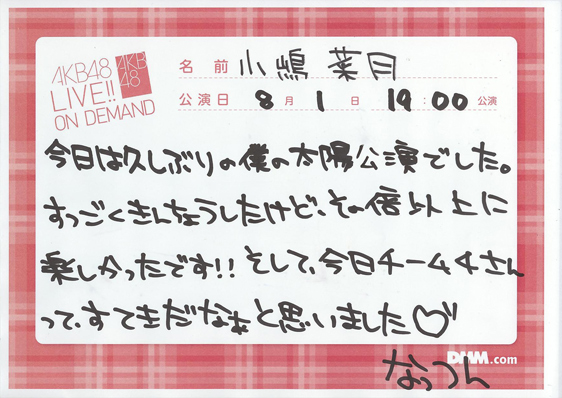 AKB48
LIVE!!
ON DEMAND
AKB
48
名前 小嶋菜月
公演日 8月1日 19:00公演
今日は久しぶりの僕の太陽公演でした。
すっごくきんちょうしたけど、その倍以上に
楽しかったです!! そして、今日チーム4さん
って、すてきだなぁと思いました♡
DMM.com
なっつん